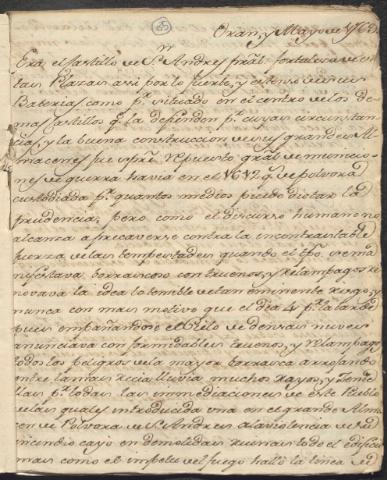 Oran, y Mayo de 1769
Era el castillo de Sn Andres pral. fortaleza de es
tas Plazas assi por lo fuerte, y estenso de sus
Baterias como pr. situado en el centro de los de
mas Castillos qe. la defienden pr. cuyas circunstan
cias, y la buena construccion de sus grandes Al
macenes fue spre. repuesto gral de municio
nes de guerra havia en el 1612 qs. de polvora
custodiada pr. quantos medios puede dictar la
prudencia; pero como el discurso humano no
alcanza a precaverse contra la incontrastable
fuerza de las tempestades quando el tpo. se ma
nifestava borrascoso con truenos, y relampagos re
novava la idea lo temible de tan eminente riesgo, y
nunca con mas motivo que el dia 4 pr. la tarde
pues empañandose el Cielo de densas nuves
anunciava con formidables truenos, y relampagos
todos los peligros de la mayor borrasca arrojando
entre la mas recia lluvia muchos rayos, y
las pr. todas las immediaciones de este Pueblo
de las quales introducida una en el grande Alma
cen de Polvora de Sn Andres a la violencia de su
incendio cayo en demolidas ruinas todo el edificio
mas como el impetu del fuego halló la linea de